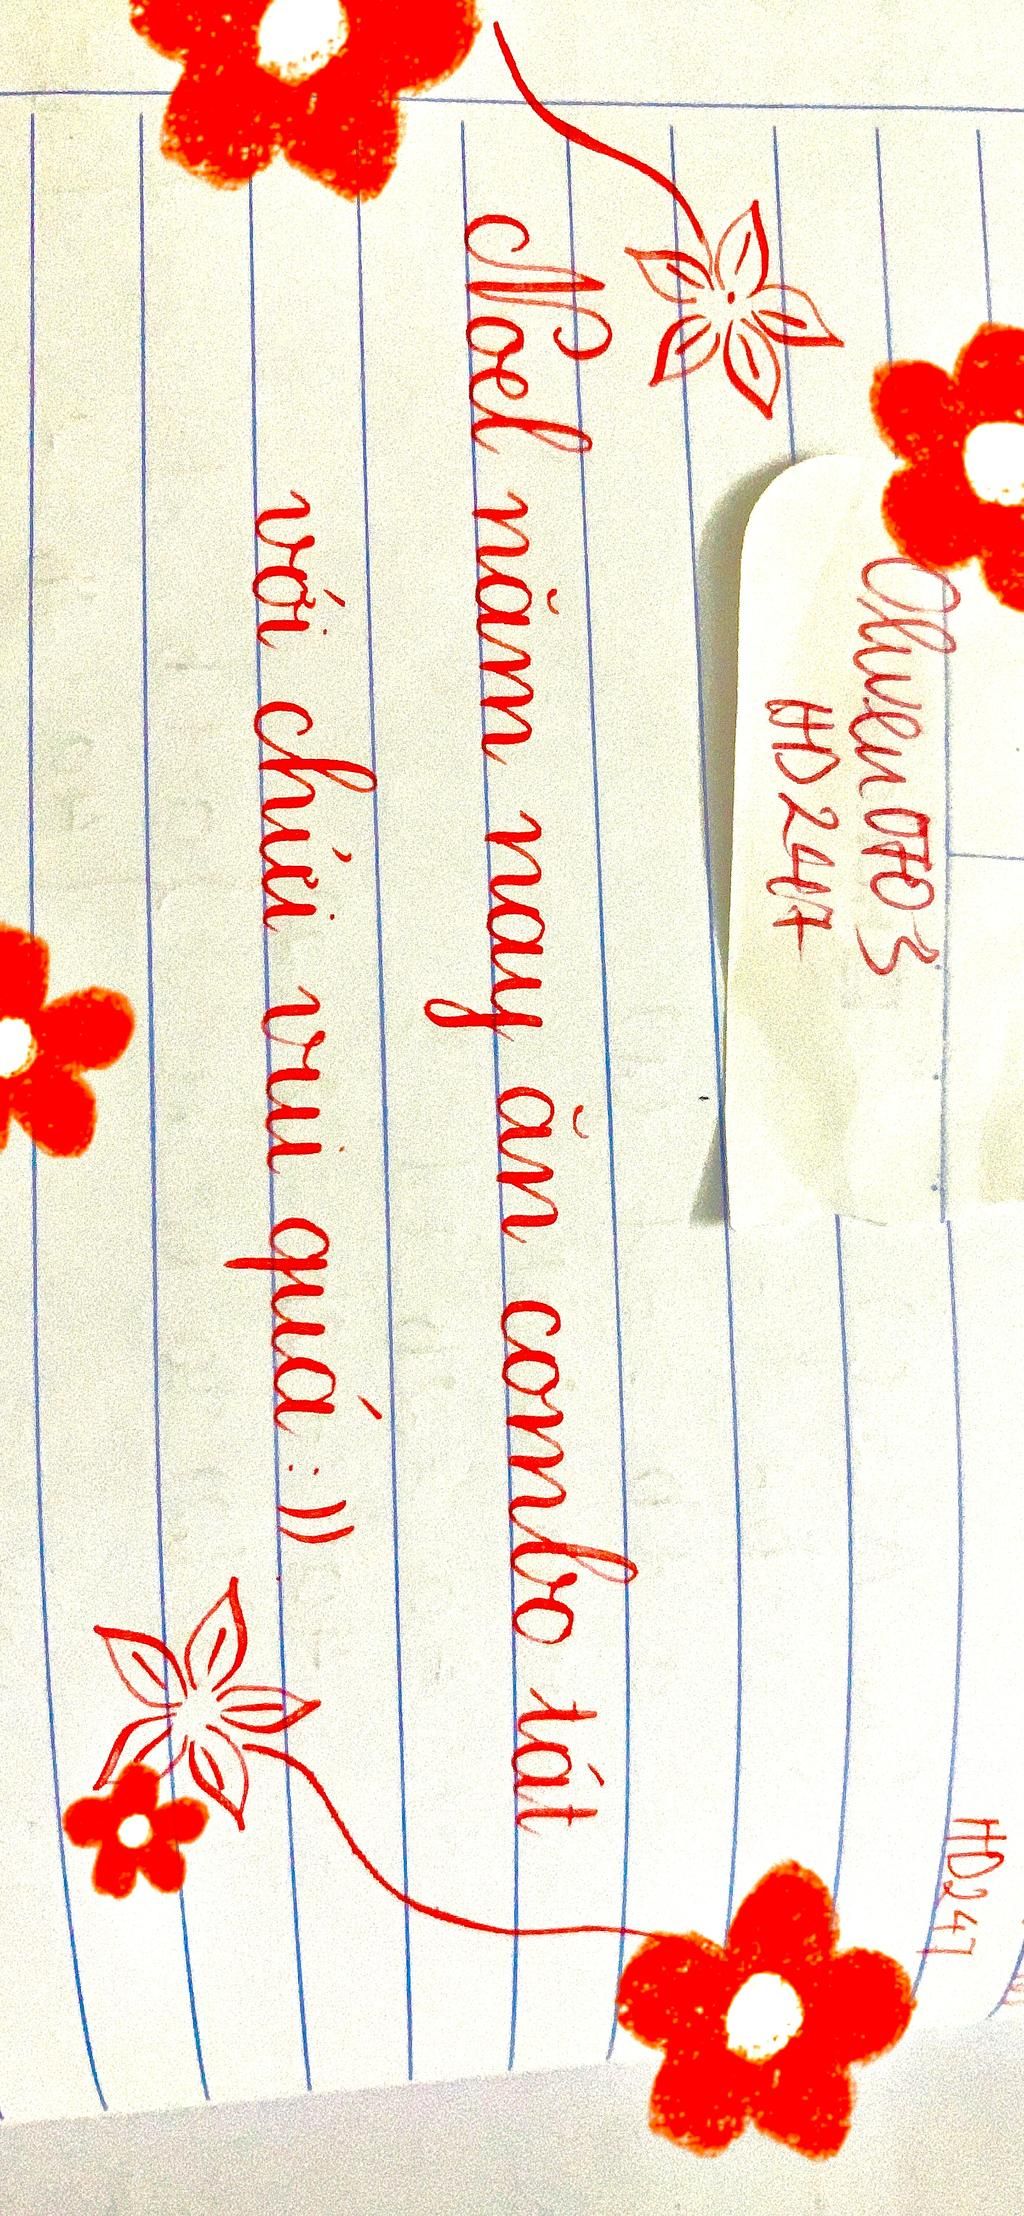 Oliver 0703
HD247
HD247
Noel năm nay ăn combo tát
với chửi vui quá :))